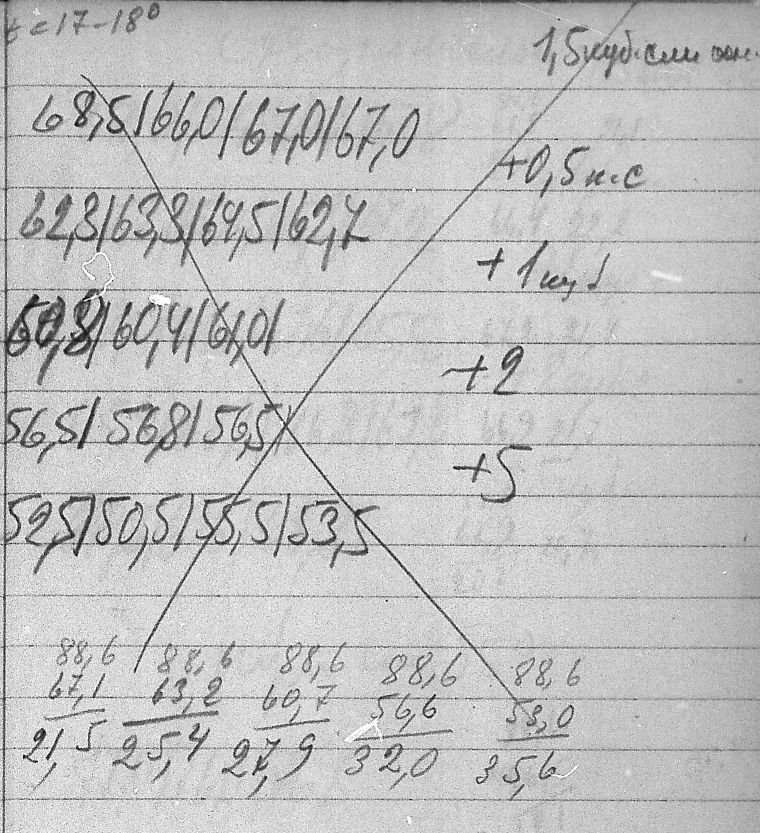 t = 17-18°
1,5 куб. см
68,5/66,0/67,0/67,0
+0,5 к.с
62,3/63,3/64,5/62,7
+1 куб
60,4/61,0/
+2
56,5/56,8/56,5/
+5
52,5/50,5/55,5/53,5
88,6 88,6 88,6 88,6 88,6
67,1 63,2 60,7 56,6 53,0
21,5 25,4 27,9 32,0 35,6